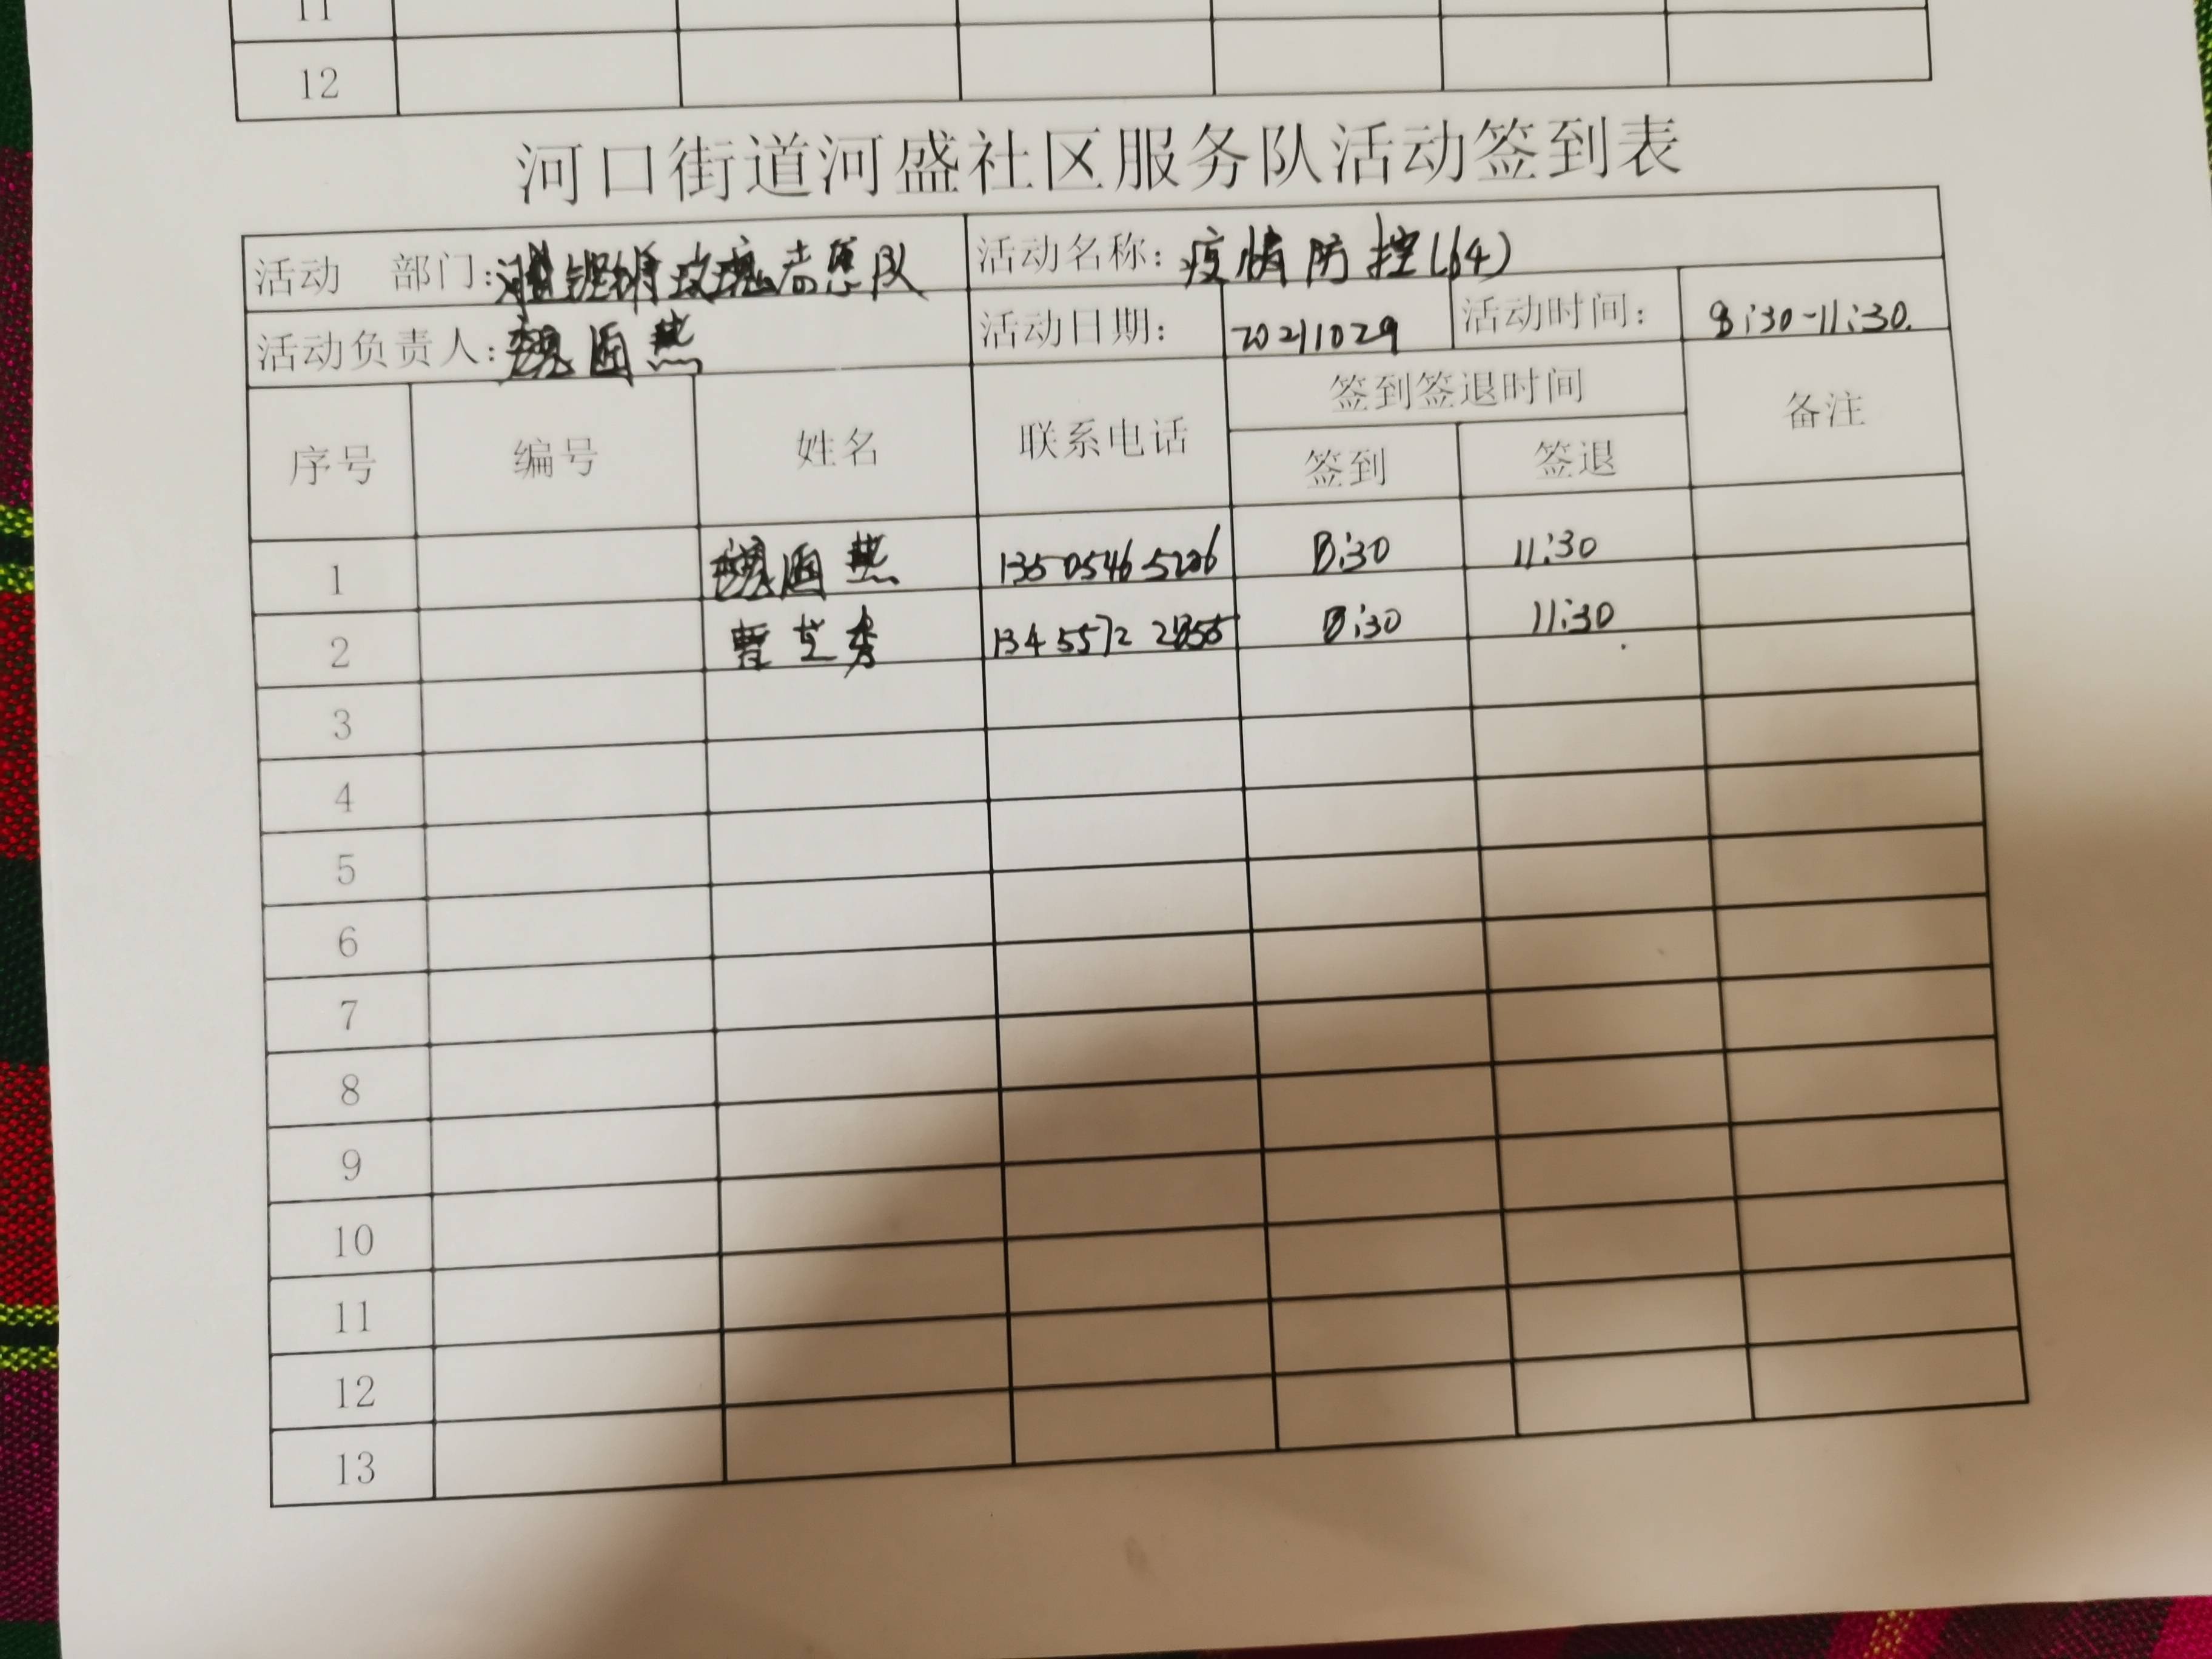 11
12
河口街道河盛社区服务队活动签到表
活动 部门: 玫瑰志愿队 活动名称: 疫情防控(64)
活动负责人: 魏 燕 活动日期: 20211029 活动时间: 8:30-11:30.
序号 编号 姓名 联系电话 签到签退时间 备注
签到 签退
1 魏 燕 13505465206 8:30 11:30
2 曹 秀 8:30 11:30
3
4
5
6
7
8
9
10
11
12
13